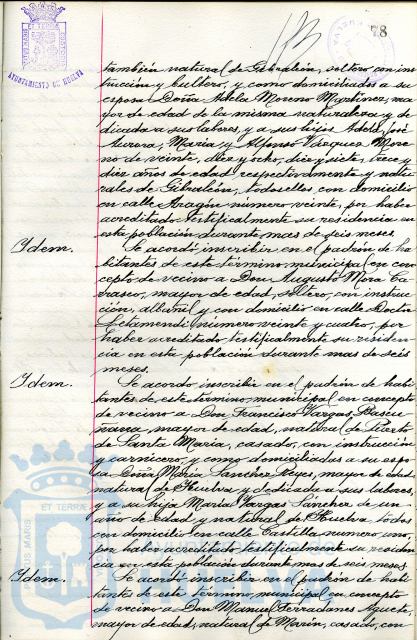 78
AYUNTAMIENTO DE HUELVA
también natural de Gibraleón, soltero con ins-
trucción y bultero, y como domiciliados a su
esposa Doña Adela Moreno Martínez, ma-
yor de edad de la misma naturaleza y de-
dicada a sus labores, y a sus hijos Adela, José
Aurora, María, y Alfonso Vázquez More-
no de veinte, diez y ocho, diez y siete, trece y
diez años de edad respectivamente y natu-
rales de Gibraleón, todos ellos con domicilio
en calle Aragón número veinte, por haber
acreditado testificalmente su residencia en
esta población durante mas de seis meses.
Idem.
Se acordó inscribir en el padrón de ha-
bitantes de este término municipal en con-
cepto de vecino a Don Augusto Mora Ca-
rrasco, mayor de edad, soltero, con instruc-
ción, albañil y con domicilio en calle Doctor
Letamendi número veinte y cuatro, por
haber acreditado testificalmente su residen-
cia en esta población durante mas de seis
meses.
Idem.
Se acordó inscribir en el padrón de habi-
tantes de este término municipal en concepto
de vecino a Don Francisco Vargas Bascu-
ñana, mayor de edad, natural de Puerto
de Santa María, casado, con instrucción
y carnicero, y como domiciliadas a su espo-
sa Doña María Sanchez Reyes, mayor de edad
natural de Huelva y dedicada a sus labores
y a su hija María Vargas Sánchez de un
año de edad y natural de Huelva, todos
con domicilio en calle Castilla número uno,
por haber acreditado testificalmente su residen-
cia en esta población durante mas de seis meses.
Idem.
Se acordó inscribir en el padrón de habi-
tantes de este término municipal en concepto
de vecino a Don Manuel
mayor de edad, natural de casado, con